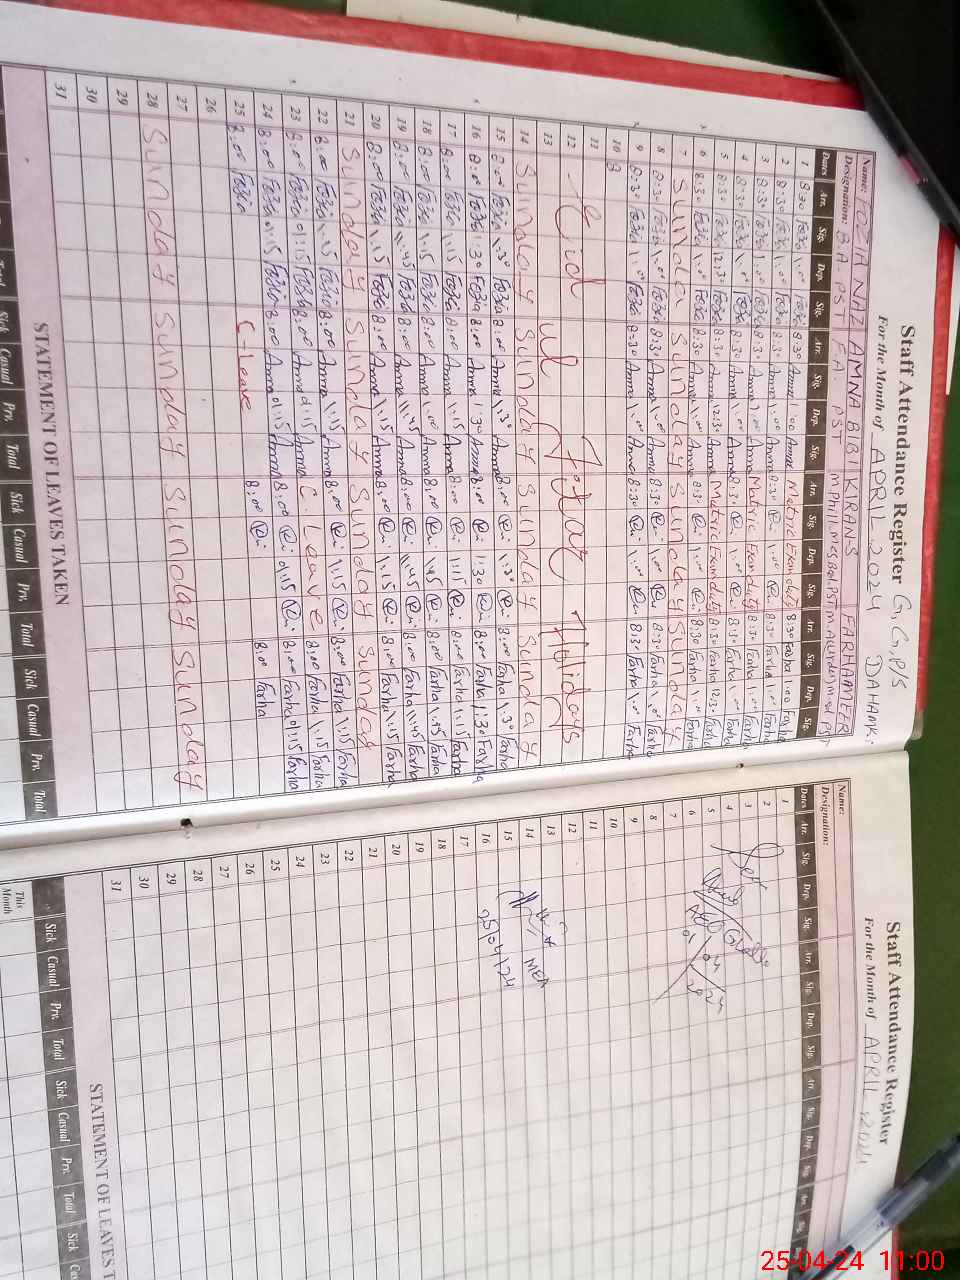 Staff Attendance Register G, G, P/S
For the Month of APRIL 2024 DAHAMK:
Name: FOZIA NAZ AMNA BIBI KIRAN S FARHA AMEER
Designation: B.A. PST F.A. PST
Dates Arr. Sig. Dep. Sig. Arr. Sig. Dep. Sig. Arr. Sig. Dep. Sig. Arr. Sig. Dep. Sig.
1 8:30 Fozia 1:00 Fozia 8:30 Amna 1:00 Amna Matric Exam duty 8:30 Farha 1:00 Farha
2 8:30 Fozia 1:00 Fozia 8:30 Amna 1:00 Amna 8:30 1:00 8:30 Farha 1:00 Farha
3 8:30 Fozia 1:00 Fozia 8:30 Amna 1:00 Amna Matric Exam duty 8:30 Farha 1:00 Farha
4 8:30 Fozia 1:00 Fozia 8:30 Amna 1:00 Amna 8:30 1:00 8:30 Farha 1:00 Farha
5 8:30 Fozia 12:30 Fozia 8:30 Amna 12:30 Amna Matric Exam duty 8:30 Farha 12:30 Farha
6 8:30 Fozia 1:00 Fozia 8:30 Amna 1:00 Amna 8:30 1:00 8:30 Farha 1:00 Farha
7 Sunday Sunday Sunday Sunday
8 8:30 Fozia 1:00 Fozia 8:30 Amna 1:00 Amna 8:30 1:00 8:30 Farha 1:00 Farha
9 8:30 Fozia 1:00 Fozia 8:30 Amna 1:00 Amna 8:30 1:00 8:30 Farha 1:00 Farha
10 8
11
12 Eid ul Fitar Holidays
13
14 Sunday Sunday Sunday Sunday
15 8:00 Fozia 1:30 Fozia 8:00 Amna 1:30 Amna 8:00 1:30 8:00 Farha 1:30 Farha
16 8:00 Fozia 1:30 Fozia 8:00 Amna 1:30 Amna 8:00 1:30 8:00 Farha 1:30 Farha
17 8:00 Fozia 1:15 Fozia 8:00 Amna 1:15 Amna 8:00 1:15 8:00 Farha 1:15 Farha
18 8:00 Fozia 1:15 Fozia 8:00 Amna 1:00 Amna 8:00 1:45 8:00 Farha 1:45 Farha
19 8:00 Fozia 11:45 Fozia 8:00 Amna 11:45 Amna 8:00 11:45 8:00 Farha 11:45 Farha
20 8:00 Fozia 1:15 Fozia 8:00 Amna 1:15 Amna 8:00 1:15 8:00 Farha 1:15 Farha
21 Sunday Sunday Sunday Sunday
22 8:00 Fozia 1:15 Fozia 8:00 Amna 1:15 Amna 8:00 1:15 8:00 Farha 1:15 Farha
23 8:00 Fozia 01:15 Fozia 8:00 Amna 01:15 Amna C. Leave 8:00 Farha 1:15 Farha
24 8:00 Fozia 01:15 Fozia 8:00 Amna 01:15 Amna 8:00 01:15 8:00 Farha 01:15 Farha
25 8:00 Fozia C-Leave 8:00 8:00 Farha
26
27
28 Sunday Sunday Sunday Sunday
29
30
31
STATEMENT OF LEAVES TAKEN
Sick Casual Prv. Total Sick Casual Prv. Total Sick Casual Prv. Total
Staff Attendance Register
For the Month of APRIL, 2024
Name:
Designation:
Dates Arr. Sig. Dep. Sig. Arr. Sig. Dep. Sig. Arr. Sig. Dep. Sig. Arr. Sig.
1
2
3
4
5
6
7
8
9
10
11
12
13
14
15
16
17
18
19
20
21
22
23
24
25
26
27
28
29
30
31
MEA
25/04/24
STATEMENT OF LEAVES T
Sick Casual Prv. Total Sick Casual Prv. Total Sick
This Month
25-04-24 11:00